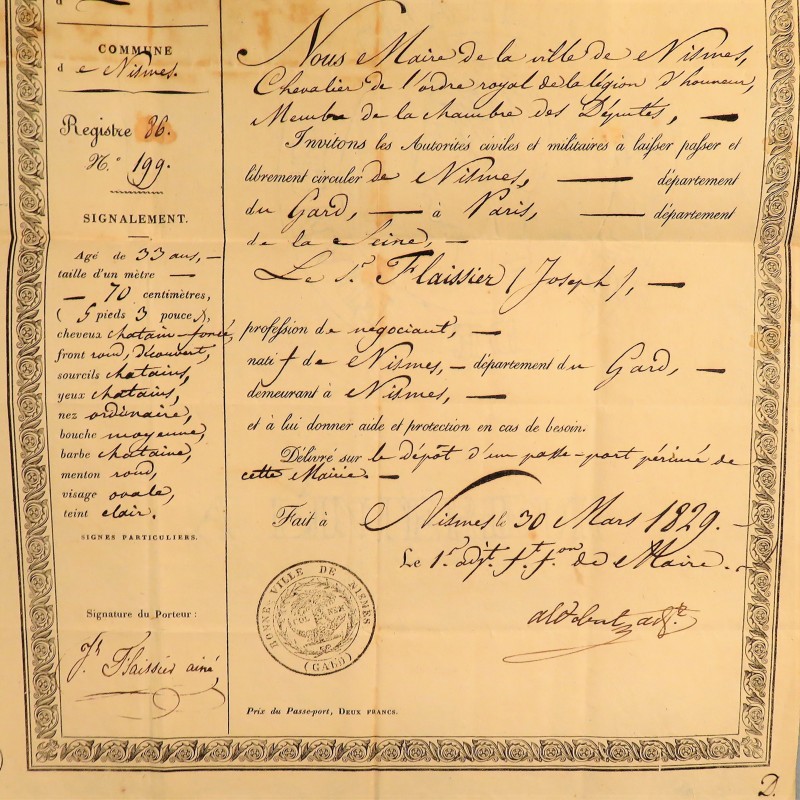 d
COMMUNE
d e Nismes.
Registre 86.
N.º 199.
SIGNALEMENT.
Agé de 33 ans,
taille d'un mètre —
— 70 centimètres,
( 5 pieds 3 pouces ),
cheveux chatain-foncé,
front rond, découvert,
sourcils chatains,
yeux chatains,
nez ordinaire,
bouche moyenne,
barbe chataine,
menton rond,
visage ovale,
teint clair.
SIGNES PARTICULIERS.
Signature du Porteur :
Jh Flaissier ainé
Nous Maire de la ville de Nismes,
Chevalier de l'ordre royal de la légion d'honneur,
Membre de la chambre des Députés, —
Invitons les Autorités civiles et militaires à laisser passer et
librement circuler de Nismes, — département
du Gard, — à Paris, — département
de la Seine, —
Le Sr. Flaissier (Joseph), —
profession de négociant, —
natif de Nismes, — département du Gard,
demeurant à Nismes, —
et à lui donner aide et protection en cas de besoin.
Délivré sur le dépôt d'un passe-port périmé de
cette Mairie. —
Fait à Nismes le 30 Mars 1829. —
Le 1r. adjt. ft. fon. de Maire. —
adjt.
BONNE VILLE DE NISMES
(GARD)
COL NEM
Prix du Passe-port, DEUX FRANCS.
D.